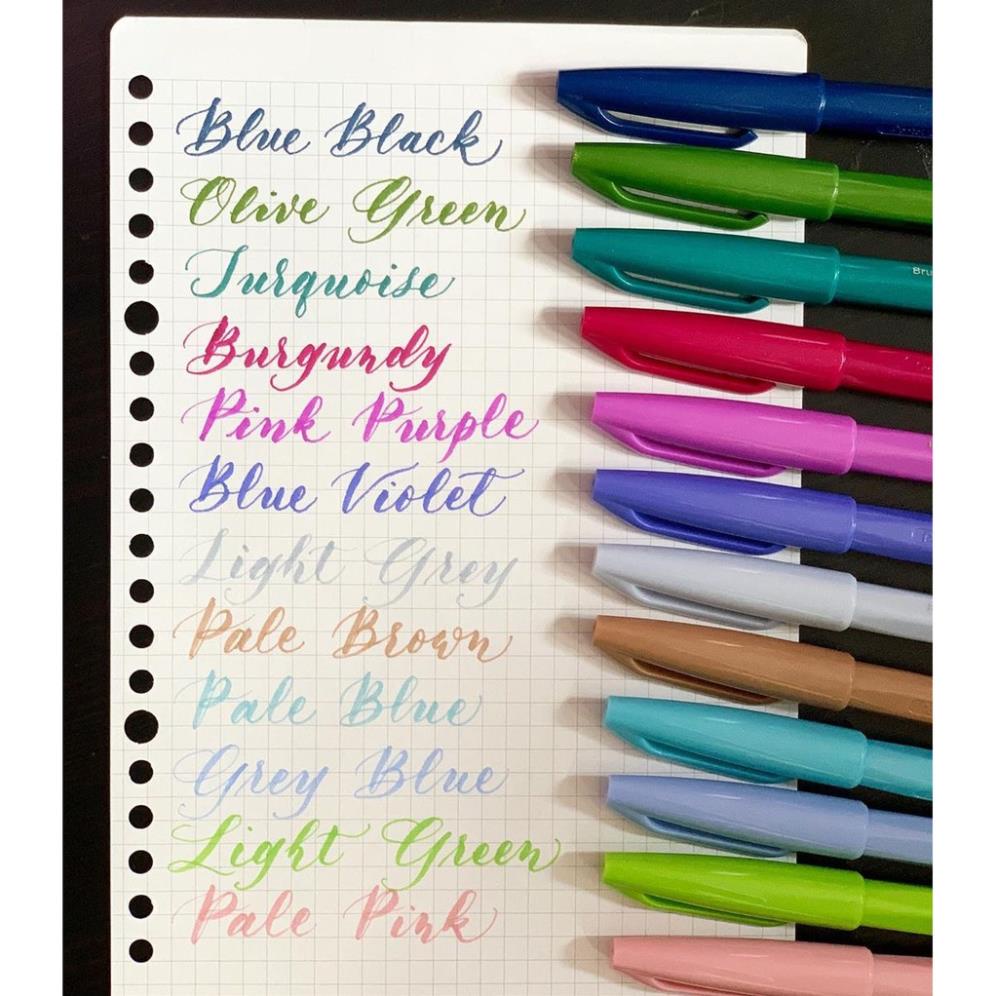 Blue Black
Olive Green
Turquoise
Bru
Burgundy
Pink Purple
Blue Violet
Light Grey
Pale Brown
Pale Blue
Grey Blue
Light Green
Pale Pink